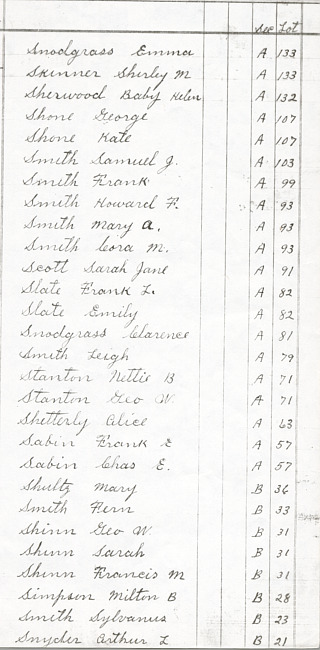 Sec Lot
Snodgrass Emma A 133
Skinner Shirley M A 133
Sherwood Baby Helen A 132
Shone George A 107
Shone Kate A 107
Smith Samuel J. A 103
Smith Frank A 99
Smith Howard F. A 93
Smith Mary A. A 93
Smith Cora M. A 93
Scott Sarah Jane A 91
Slate Frank L. A 82
Slate Emily A 82
Snodgrass Clarence A 81
Smith Leigh A 79
Stanton Nettie B A 71
Stanton Geo W. A 71
Shetterly Alice A 63
Sabin Frank E A 57
Sabin Chas E. A 57
Shultz Mary B 36
Smith Fern B 33
Shinn Geo W. B 31
Shinn Sarah B 31
Shinn Francis M B 31
Simpson Milton B B 28
Smith Sylvanus B 23
Snyder Arthur L B 21